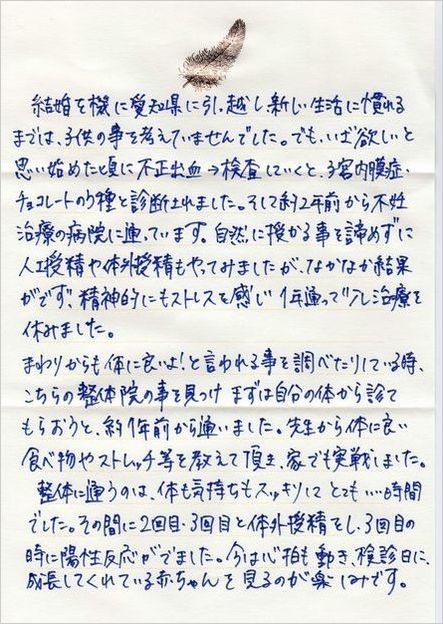 結婚を機に愛知県に引っ越し、新しい生活に慣れる
までは、子供の事を考えていませんでした。でも、いざ欲しいと
思い始めた頃に不正出血→検査していくと、子宮内膜症・
チョコレートのう種と診断されました。そして約2年前から不妊
治療の病院に通っています。自然に授かる事を諦めずに
人工授精や体外授精もやってみましたが、なかなか結果
がです、精神的にもストレスを感じ 1年通って少し治療を
休みました。
まわりからも体に良いよ!と言われる事を調べたりしている時、
こちらの整体院の事を見つけ まずは自分の体から診て
もらおうと、約1年前から通いました。先生から体に良い
食べ物やストレッチ等を教えて頂き、家でも実戦しました。
整体に通うのは、体も気持ちもスッキリして とてもいい時間
でした。その間に2回目・3回目と体外授精をし、3回目の
時に陽性反応がでました。今は心拍も動き、検診日に、
成長してくれている赤ちゃんを見るのが楽しみです。